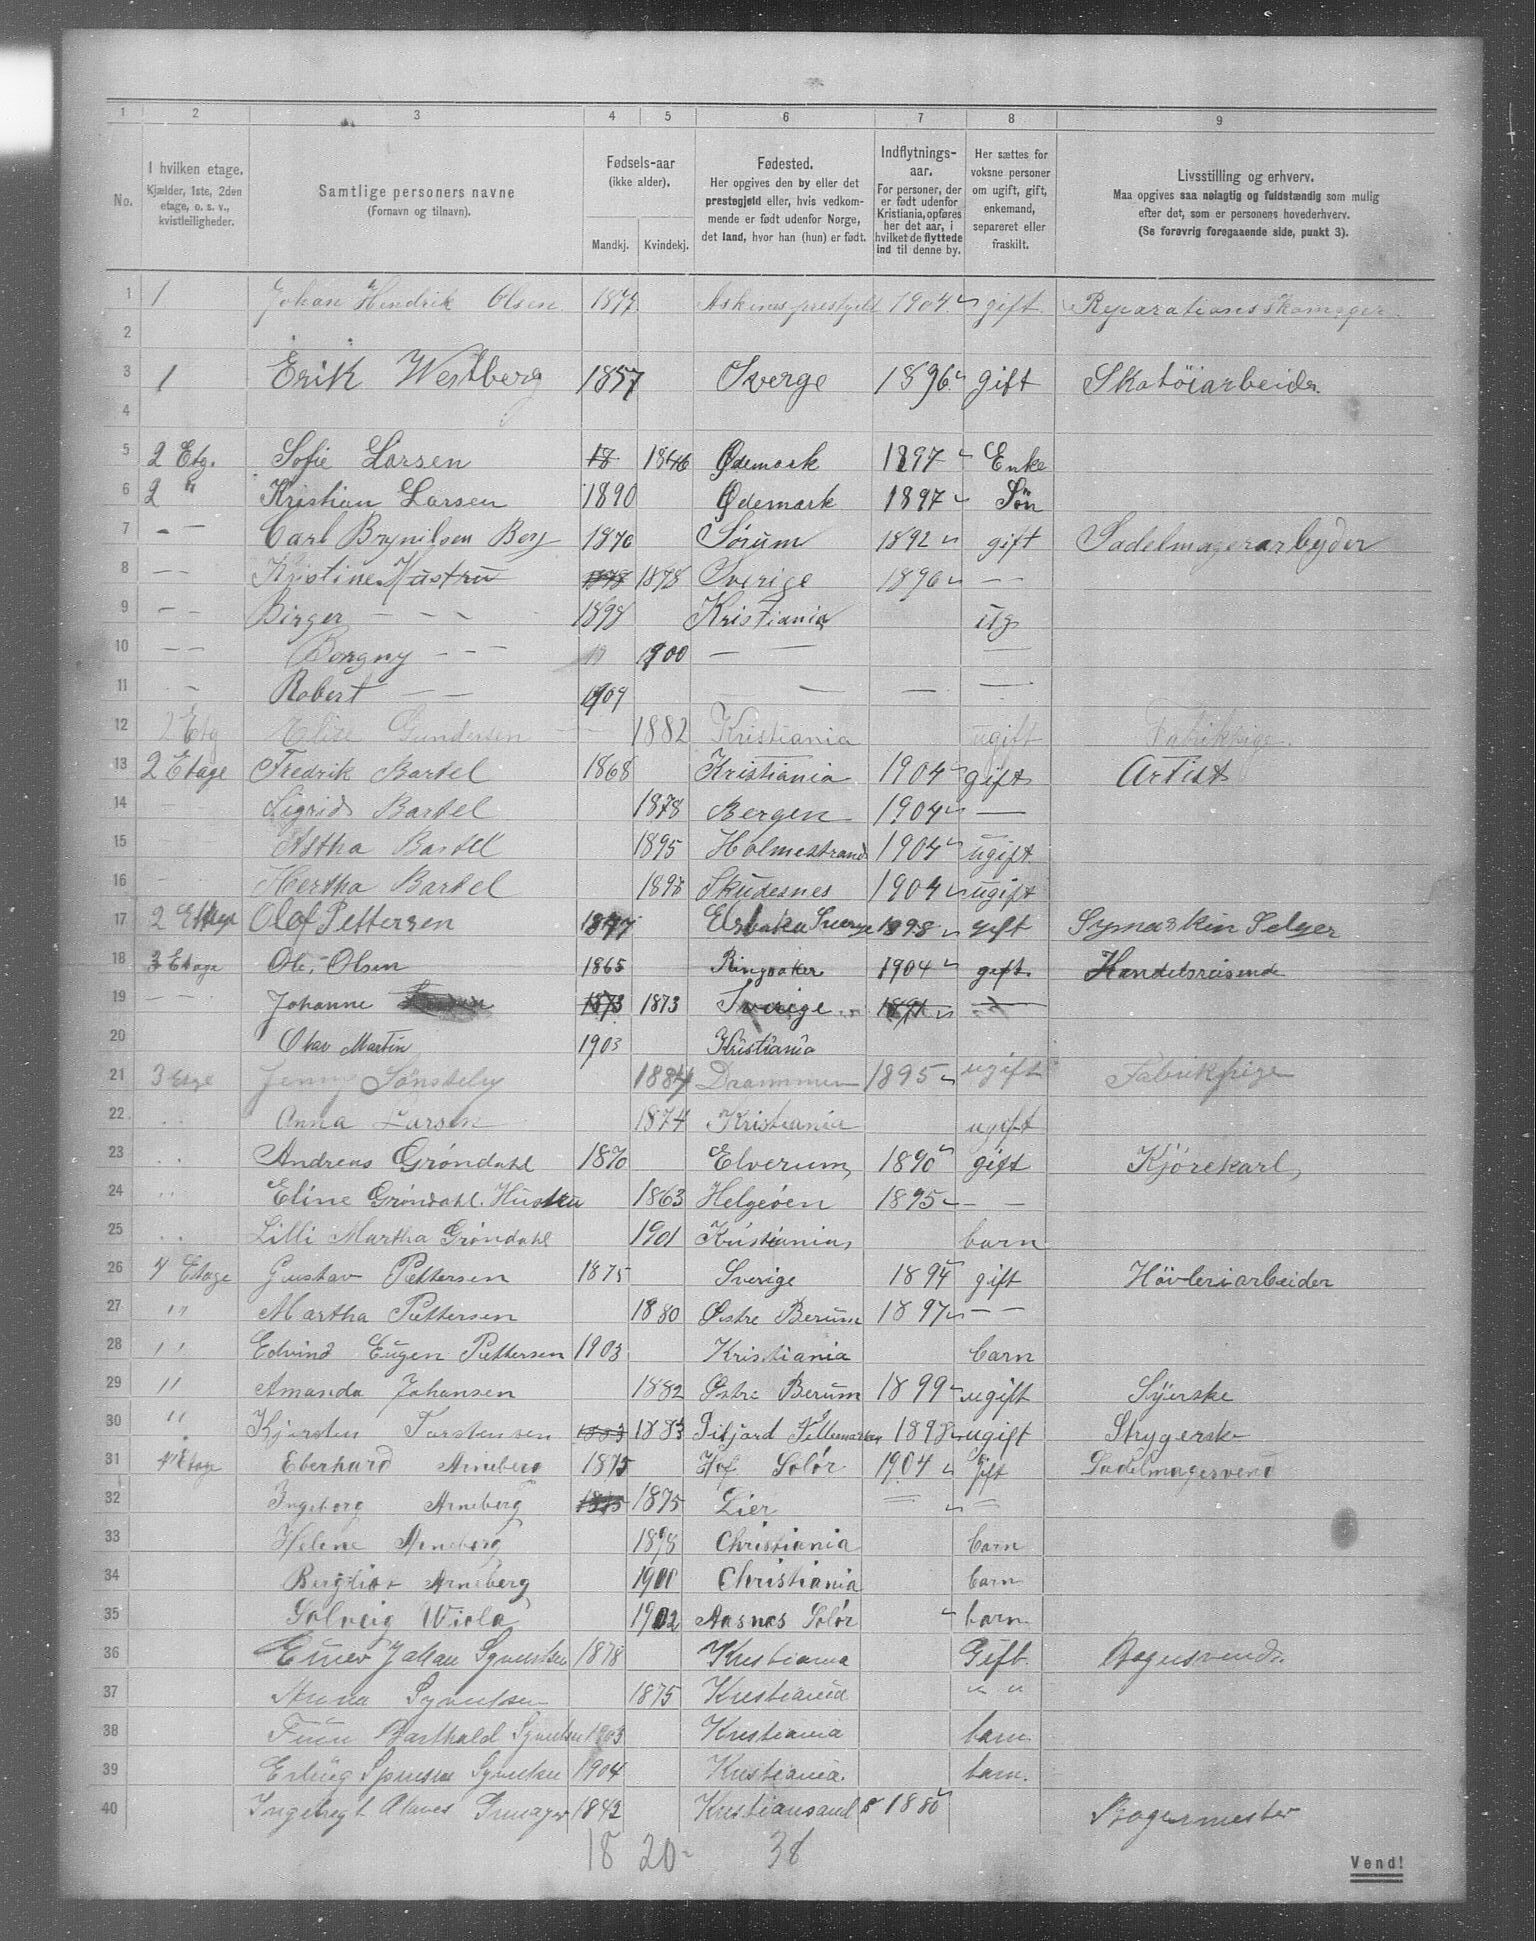 1 2 3 4 5 6 7 8 9
No.
I hvilken etage.
Kjælder, 1ste, 2den
etage, o. s. v.,
kvistleiligheder.
Samtlige personers navne
(Fornavn og tilnavn).
Fødsels-aar
(ikke alder).
Mandkj. Kvindekj.
Fødested.
Her opgives den by eller det
prestegjeld eller, hvis vedkom-
mende er født udenfor Norge,
det land, hvor han (hun) er født.
Indflytnings-
aar.
For personer, der
er født udenfor
Kristiania, opføres
her det aar, i
hvilket de flyttede
ind til denne by.
Her sættes for
voksne personer
om ugift, gift,
enkemand,
separeret eller
fraskilt.
Livsstilling og erhverv.
Maa opgives saa nøiagtig og fuldstændig som mulig
efter det, som er personens hovederhverv.
(Se forøvrig foregaaende side, punkt 3).
1 1 Johan Hendrik Olsen 1877 1904 gift Reparations Skomager
2
3 1 Erik Westberg 1857 Sverge 1896 gift Skotöiarbeider
4
5 2 Etg. Sofie Larsen 18 1846 Ødemark 1897 Enke
6 2 " Kristian Larsen 1890 Ødemark 1897 Sön
7 - - Carl Brynilsen Berg 1870 Sörum 1892 gift Sadelmagerarbyder
8 - - Kristine Hustru 1878 1878 Sverige 1896 - -
9 - - Birger - - - 1898 Kristiania ug
10 - - Borgny - - - 19 1900 - - -
11 - Robert - - 1904 - - -
12 2 Etg Elise Gundersen 1882 Kristiania ugift Fabrikpige.
13 2 Etage Fredrik Bartel 1868 Kristiania 1904 gift Artist
14 - - Sigrid Bartel 1878 Bergen 1904 -
15 - - Astha Bartel 1895 Holmestrand 1904 ugift
16 - - Hertha Bartel 1897 Skudesnes 1904 ugift
17 2 Etage Olof Pettersen 1877 1898 gift Symaskin Selger
18 3 Etage Ole Olsen 1865 Ringsaker 1904 gift Handelsreisende
19 - - Johanne 1873 1873 Sverige 1891 -
20 Olav Martin 1903 Kristiania
21 3 Etge Jenny Sönsteby 1884 Drammen 1895 ugift Fabrikpige
22 .. Anna Larsen 1874 Kristiania ugift
23 .. Andreas Gröndahl 1870 Elverum 1890 gift Kjörekarl,
24 .. Eline Gröndahl. Hustru 1863 Helgeöen 1895 - -
25 .. Lilli Martha Gröndahl 1901 Kristiania, barn
26 4 Etage Gustav Pettersen 1875 Sverige 1894 gift Hövleriarbeider
27 " Martha Pettersen 1880 Östre Berum 1897 - -
28 " Edvind Eugen Pettersen 1903 Kristiania barn
29 " Amanda Johansen 1882 Östre Berum 1899 ugift Syerske
30 " Kjersten Torstensen 1883 1883 1898 ugift Strygerske
31 4 Etage Eberhard Arneberg 1875 Hof Solör 1904 Gift Sadelmagersvend
32 Ingeborg Arneberg 1875 1875 Lier = =
33 Helene Arneberg 1898 Christiania barn
34 Bergliot Arneberg 1900 Christiania barn
35 Solveig Wiola 1902 Aasnes Solör barn
36 Einer Johan Syvertsen 1878 Kristiania Gift. Bogersvend.
37 Anna Syvertsen 1875 Kristiania " "
38 Finn Barthold Syvertsen 1903 Kristiania barn
39 Erling Syvertsen 1904 Kristiania. barn.
40 Ingebregt 1842 Kristiansand S 1880 Bogermester
18 20- 38
Vend!